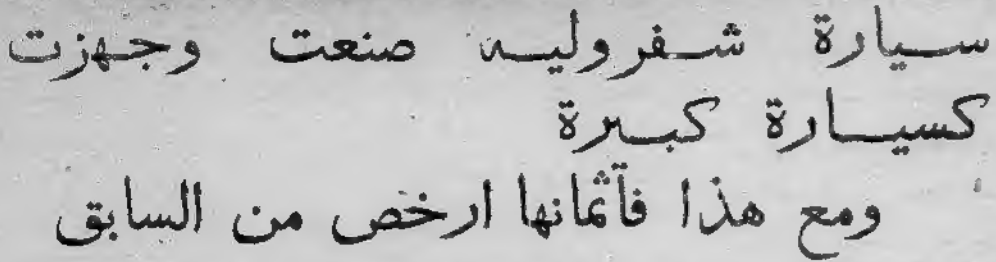 سيارة شفروليه صنعت وجهزت
كسيارة كبيرة
ومع هذا فآثمانها ارخص من السابق